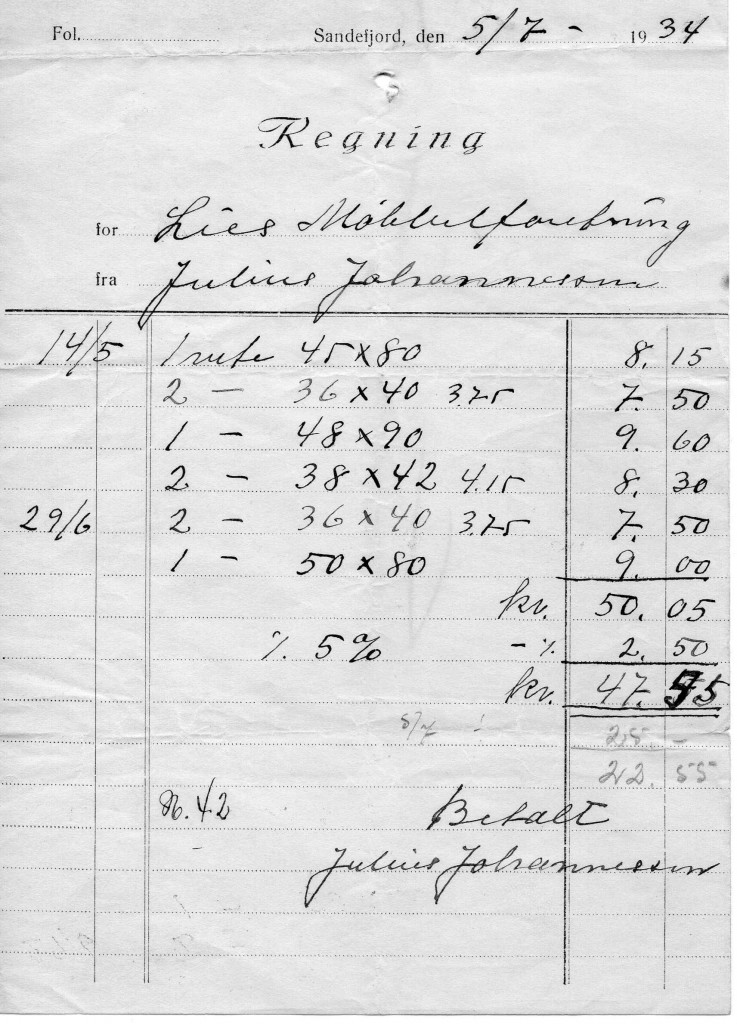 Fol. Sandefjord, den 5/7 - 1934
Regning
for Lies Møbbelforetning
fra Julius Johannessen
14/5 1 rute 45 x 80 8. 15
2 - 36 x 40 3.75 7. 50
1 - 48 x 90 9. 60
2 - 38 x 42 4.15 8. 30
29/6 2 - 36 x 40 3.75 7. 50
1 - 50 x 80 9. 00
kr. 50. 05
% 5% - % 2. 50
kr. 47. 55
5/7 25 -
22. 55
N. 42 Betalt
Julius Johannessen